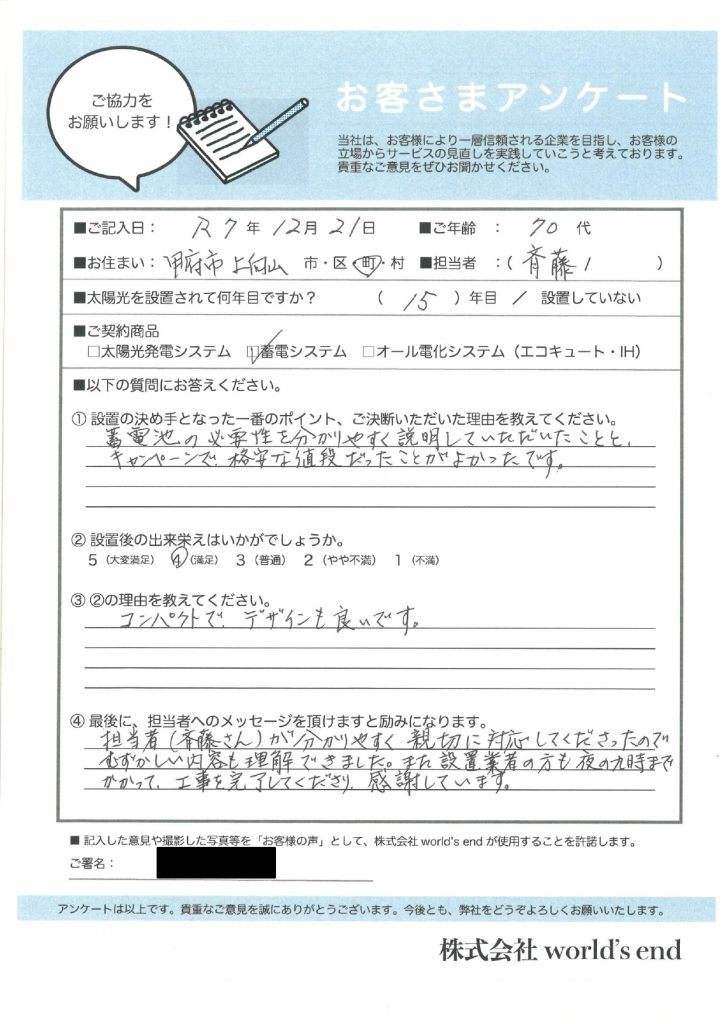 ご協力を
お願いします!
お客さまアンケート
当社は、お客様により一層信頼される企業を目指し、お客様の
立場からサービスの見直しを実践していこうと考えております。
貴重なご意見をぜひお聞かせください。
■ご記入日: R7年 12月 21日 ■ご年齢 : 70 代
■お住まい: 甲府市上向山 市・区・町・村 ■担当者 :( 斉藤 )
■太陽光を設置されて何年目ですか? ( 15 ) 年目 / 設置していない
■ご契約商品
□太陽光発電システム ☑蓄電システム □オール電化システム(エコキュート・IH)
■以下の質問にお答えください。
① 設置の決め手となった一番のポイント、ご決断いただいた理由を教えてください。
蓄電池の必要性を分かりやすく説明していただいたことと、
キャンペーンで、格安な値段だったことがよかったです。
② 設置後の出来栄えはいかがでしょうか。
5(大変満足) ④(満足) 3(普通) 2(やや不満) 1(不満)
③ ②の理由を教えてください。
コンパクトで、デザインも良いです。
④ 最後に、担当者へのメッセージを頂けますと励みになります。
担当者(斉藤さん)が分かりやすく親切に対応してくださったので
むずかしい内容も理解できました。また設置業者の方も夜の九時まで
かかって、工事を完了してくださり、感謝しています。
■ 記入した意見や撮影した写真等を「お客様の声」として、株式会社 world's end が使用することを許諾します。
ご署名:
アンケートは以上です。貴重なご意見を誠にありがとうございます。今後とも、弊社をどうぞよろしくお願いいたします。
株式会社 world's end